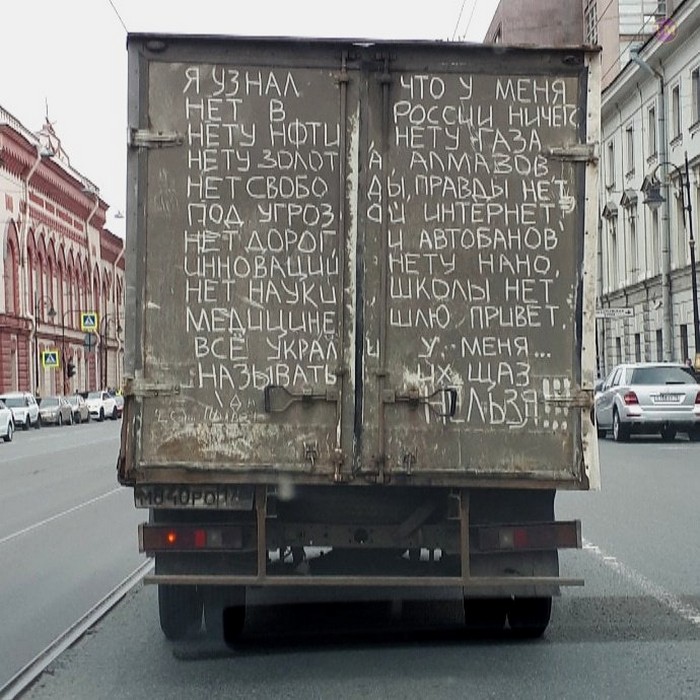 Я УЗНАЛ ЧТО У МЕНЯ
НЕТ В РОССИИ НИЧЕГ
НЕТУ НФТИ, НЕТУ ГАЗА
НЕТУ ЗОЛОТА, АЛМАЗОВ
НЕТ СВОБОДЫ, ПРАВДЫ НЕТ
ПОД УГРОЗОЙ ИНТЕРНЕТ
НЕТ ДОРОГ И АВТОБАНОВ
ИННОВАЦИЙ НЕТУ НАНО,
НЕТ НАУКИ ШКОЛЫ НЕТ
МЕДИЦИНЕ ШЛЮ ПРИВЕТ.
ВСЁ УКРАЛИ У МЕНЯ...
НАЗЫВАТЬ ИХ ЩАЗ
НЕЛЬЗЯ!!!